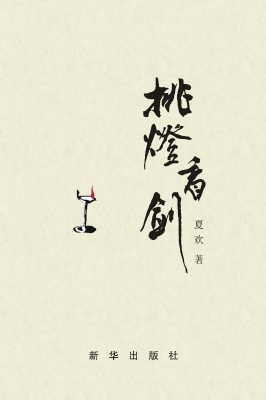 挑燈看剑
夏欢 著
新华出版社